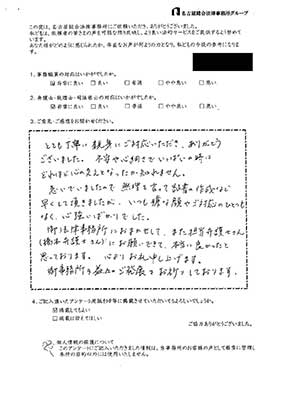 名古屋総合法律事務所グループ
この度は、名古屋総合法律事務所にご依頼いただき、ありがとうございました。
私どもは、依頼者の皆さまの声を可能な限り反映し、より良い法的サービスをご提供するよう努めています。
あなた様がどのように感じられたか、率直なお声が何よりの力となり、私どもの今後の参考になります。
1. 事務職員の対応はいかがでしたか。
☑非常に良い □良い □普通 □やや悪い □悪い
2. 弁護士・税理士・司法書士の対応はいかがでしたか。
☑非常に良い □良い □普通 □やや悪い □悪い
3. ご意見・ご感想をお聞かせください。
とても丁寧に親身にご対応いただき、ありがとう
ございました。不安や心細さでいっぱいの時に
どれほど心の支えとなったか知れません。
急いでいましたので無理を言って書の作成など
早くして頂きましたが、いつも嫌な顔やご対応のひとつも
なく、心強いばかりでした。
御法律事務所におまかせして、また担当弁護士さん
(橋本弁護士さん)にお願いできて、本当に良かったと
思っております。心よりお礼申し上げます。
御事務所の益々のご発展をお祈りしております。
4. ご記入頂いたアンケート用紙をHP等に掲載させていただいてもよろしいでしょうか。
☑掲載してもよい
□掲載は控えてほしい
ご協力ありがとうございました。
個人情報の保護について
このアンケートにご記入いただきました情報は、当事務所のお客様の声として厳重に管理し
本件の目的以外には使用いたしません。